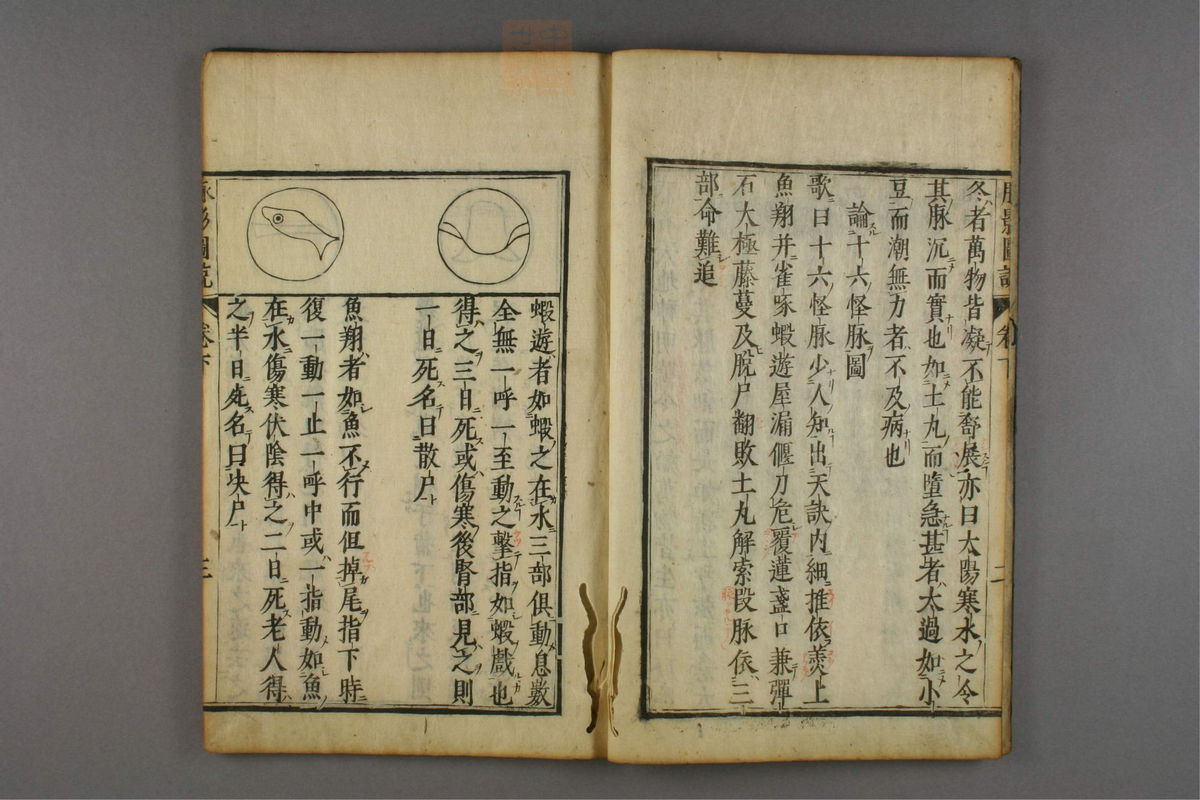 冬者萬物皆凝不能舒展亦曰太陽寒水之令
其脉沉而實也如土丸而墮急甚者太過如小
豆而潮無力者不及病也
論十六怪脉圖
歌曰十六怪脉少人知出天訣内細推依羙上
魚翔并雀啄蝦遊屋漏偃刀危覆蓮盞口兼彈
石大極藤蔓及脫尸翻敗土丸解索段脉依三
部命難追
蝦遊者如蝦之在水三部俱動息數
全無一呼一至動之擊指如蝦戲也
得之三日死或傷寒後腎部見之則
一日死名曰散尸
魚翔者如魚不行而但掉尾指下時
復一動一止一呼中或一指動如魚
在水傷寒伏陰得之二日死老人得
之半日死名曰决尸
三